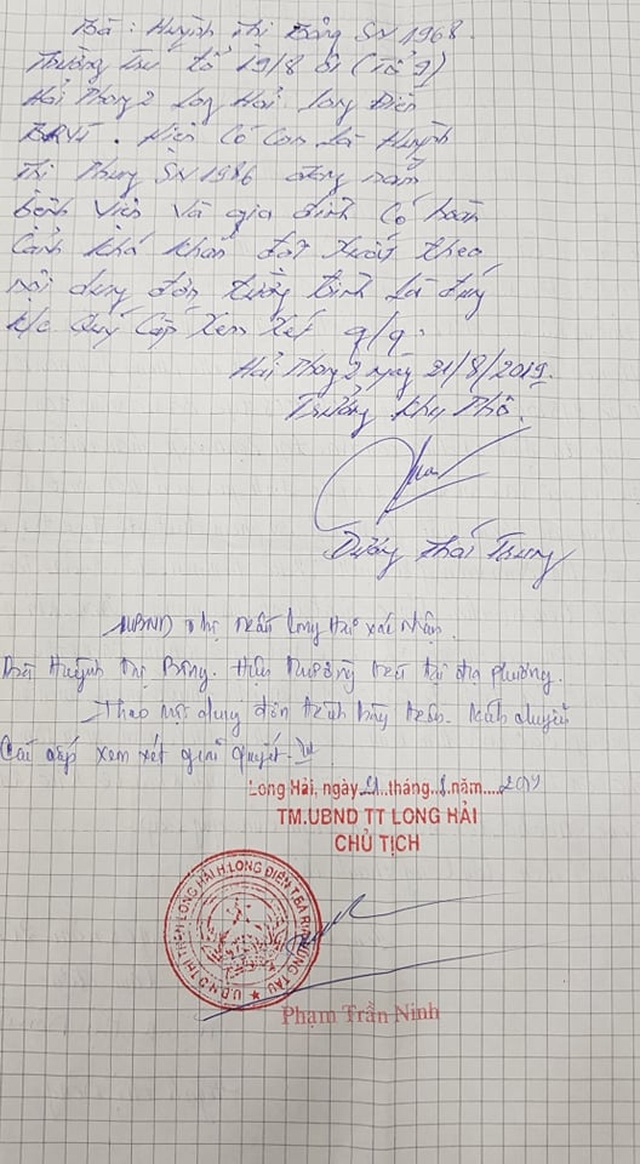 Bà: Huỳnh Thị Bông SN 1968.
Thường trú tổ 19/8 ôl (Tổ 9)
Hải Phong 2 Long Hải Long Điền
BRVT. Hiện có con là Huỳnh
Thị Phụng SN 1986 đang nằm
bệnh viện và gia đình có hoàn
cảnh khó khăn đột xuất theo
nội dung đơn tường trình là đúng
K/c Quý Cấp xem xét g/q.
Hải Phong 2 ngày 21/8/2019.
Trưởng khu phố.
Dương Thái Trung
UBND thị trấn Long Hải xác nhận.
Bà Huỳnh Thị Bông. Hiện thường trú tại địa phương.
Theo nội dung đơn trình bày trên. Kính chuyển
Các cấp xem xét giải quyết.
Long Hải, ngày 21 tháng 8 năm 2019
TM.UBND TT LONG HẢI
CHỦ TỊCH
U.B.N.D THỊ TRẤN LONG HẢI H.LONG ĐIỀN T.BÀ RỊA VŨNG TÀU
Phạm Trần Ninh